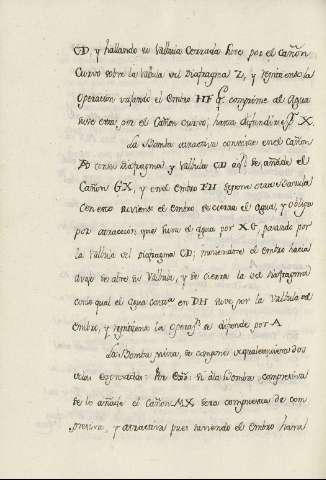 CD, y hallando su Valbula Cerrada sube por el Cañon
Curvo sobre la Valbula del Diafragma Z, y repitiendo la
Operacion vajando el embro HF q. comprime al Agua
sube esta por el Cañon curvo, hasta despedirse p. X.
La Bomba atractiva consiste en el cañon
AD con su Diafragma y Valbula CD aqe. se añade el
Cañon GX, y en el embro FH se pone otra Valbula
Con esto subiendo el embro se cierra el agua, y obliga
por atraccion que suva el agua por XG, pasando por
la Valbula del Diafragma CD; moviendose el embro hacia
avajo se abre su Valbula, y se cierra la del Diafragma
con lo qual el agua contda. en DH sube por la Valbula del
embro, y repitiendo la operaon. se despide por A
La Bomba mixta, se compone de qualesquiera dos
de las expresadas: Por Exo. si a la Bomba, compresiva
se le añade el Cañon MX sera compuesta de com
presiva, y atractiva pues subiendo el embro hasta